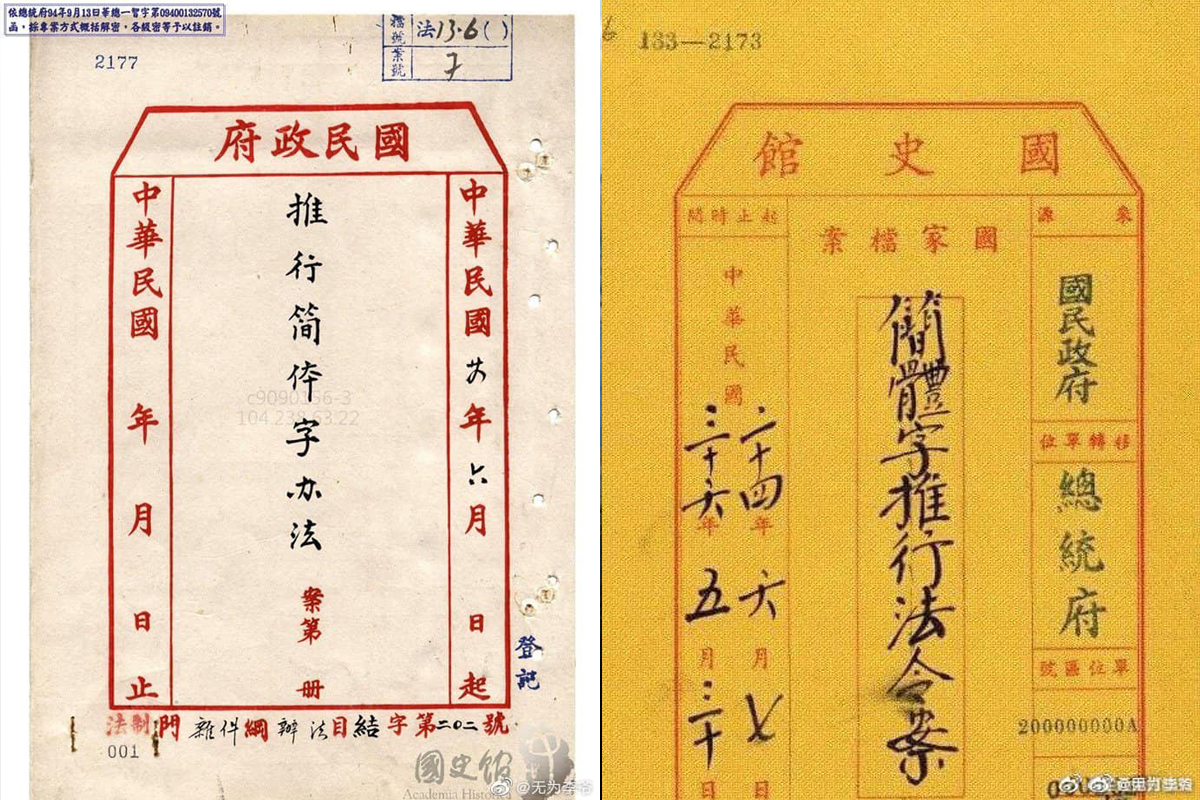 依總統府94年9月13日華總一智字第09400132570號
函,採專案方式概括解密,各級密等予以註銷。
2177
檔號 法13·6( )
案號 7
國民政府
中華民國 年六月 日起
推行简体字办法
案第 册
中華民國 年 月 日止
登記
c9090156-3
104.238.63.22
法制門雜件綱辦法目結字第二〇二號
001
國史館
Academia Historica
@无为李爷
133—2173
國史館
來源
國民政府
移轉單位
總統府
單位區號
200000000A
國家檔案
簡體字推行法令案
起止時間
中華民國
二十四年六月七日
三十六年五月三十日